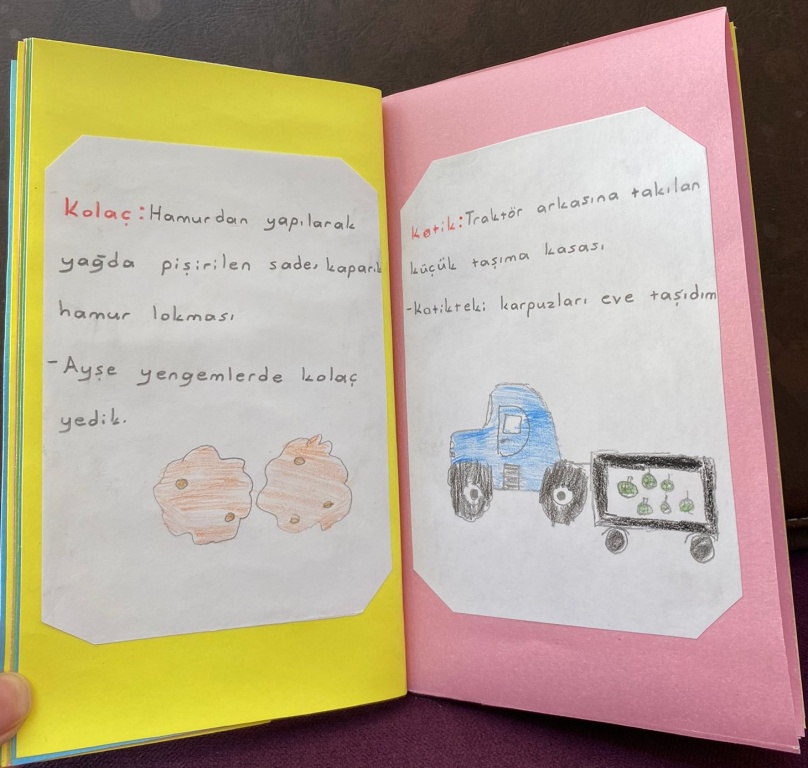 Kolaç: Hamurdan yapılarak
yağda pişirilen sade, kaparık
hamur lokması
-Ayşe yengemlerde kolaç
yedik.
Kotik: Traktör arkasına takılan
küçük taşıma kasası
-Kotikteki karpuzları eve taşıdım